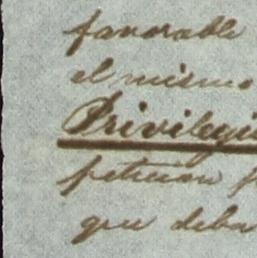 favorable
el mismo
Privilegi
peticion f
que deba